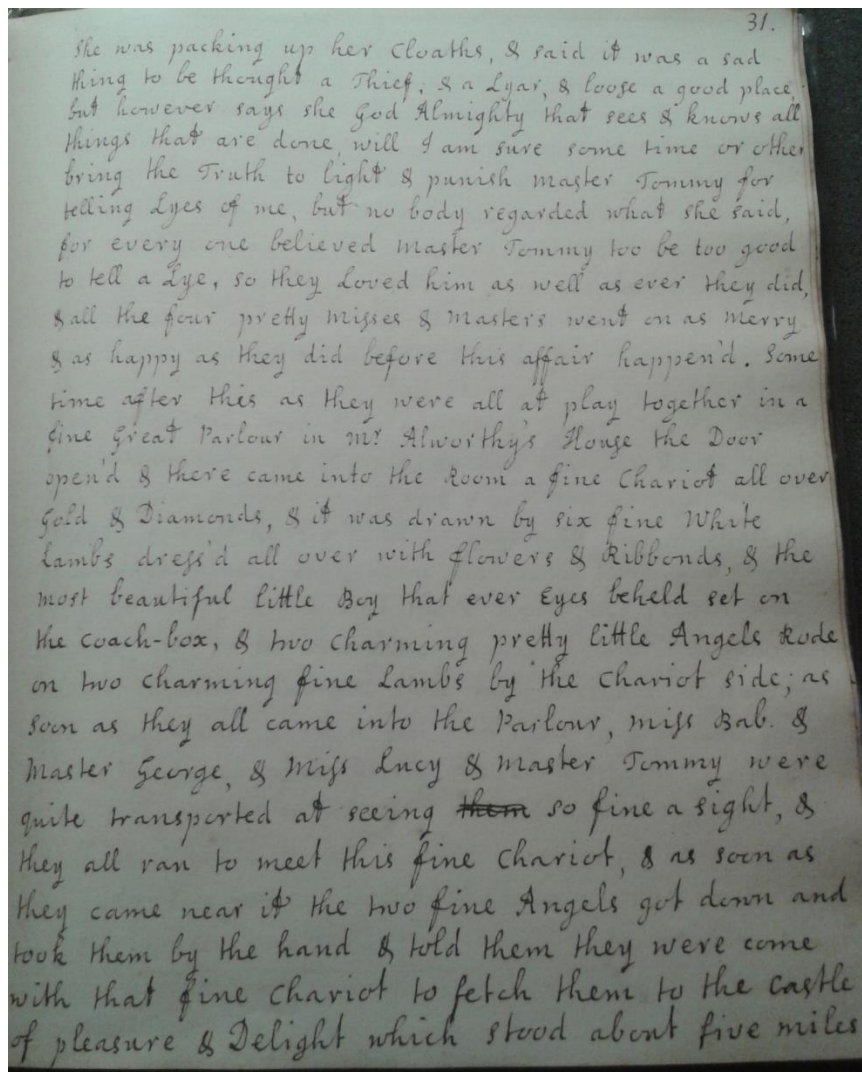 31.
she was packing up her Cloaths, & said it was a sad
thing to be thought a Thief, & a Lyar, & loose a good place,
but however says she God Almighty that sees & knows all
things that are done, will I am sure some time or other
bring the Truth to light & punish Master Tommy for
telling Lyes of me, but no body regarded what she said,
for every one believed Master Tommy too be too good
to tell a Lye, so they Loved him as well as ever they did,
& all the four pretty Misses & Masters went on as Merry
& as happy as they did before this affair happen'd. Some
time after this as they were all at play together in a
fine Great Parlour in Mr Alworthy's House the Door
open'd & there came into the Room a fine Chariot all over
Gold & Diamonds, & it was drawn by six fine White
Lambs dress'd all over with flowers & Ribbonds, & the
most beautiful little Boy that ever Eyes beheld set on
the Coach-box, & two Charming pretty little Angels Rode
on two Charming fine Lambs by the Chariot side; as
soon as they all came into the Parlour, Miss Bab. &
Master George, & Miss Lucy & Master Tommy were
quite transported at seeing them so fine a sight, &
they all ran to meet this fine Chariot, & as soon as
they came near it the two fine Angels got down and
took them by the hand & told them they were come
with that fine Chariot to fetch them to the Castle
of pleasure & Delight which stood about five miles